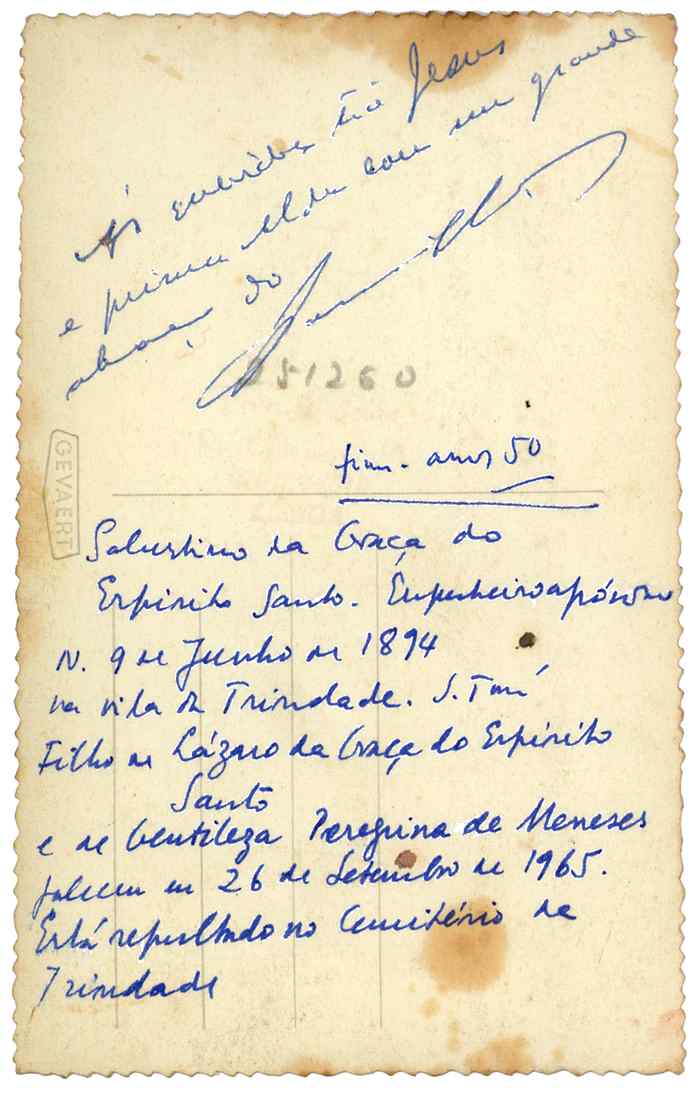 Às queridas tia Jesus
e prima Alda com um grande
abraço do
251260
GEVAERT
fim - anos 50
Salustino da Graça do
Espírito Santo. Engenheiro agrónomo
N. 9 de Junho de 1894
na vila da Trindade. S. Tomé
Filho de Lázaro da Graça do Espírito
Santo
e de Gentileza Peregrina de Meneses
faleceu em 26 de Setembro de 1965.
Está sepultado no Cemitério de
Trindade